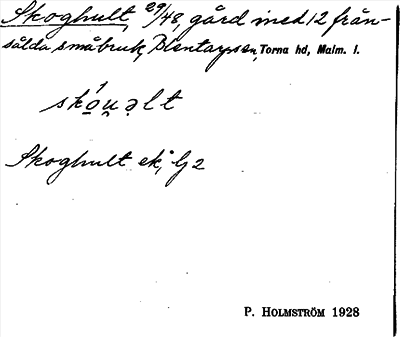 Skoghult, 29/48, gård med 12 från-
sålda småbruk, Blentarps sn, Torna hd, Malm. l.
skо̲́u̯ə̣lt
Skoghult ek, Cj 2
P. HOLMSTRÖM 1928